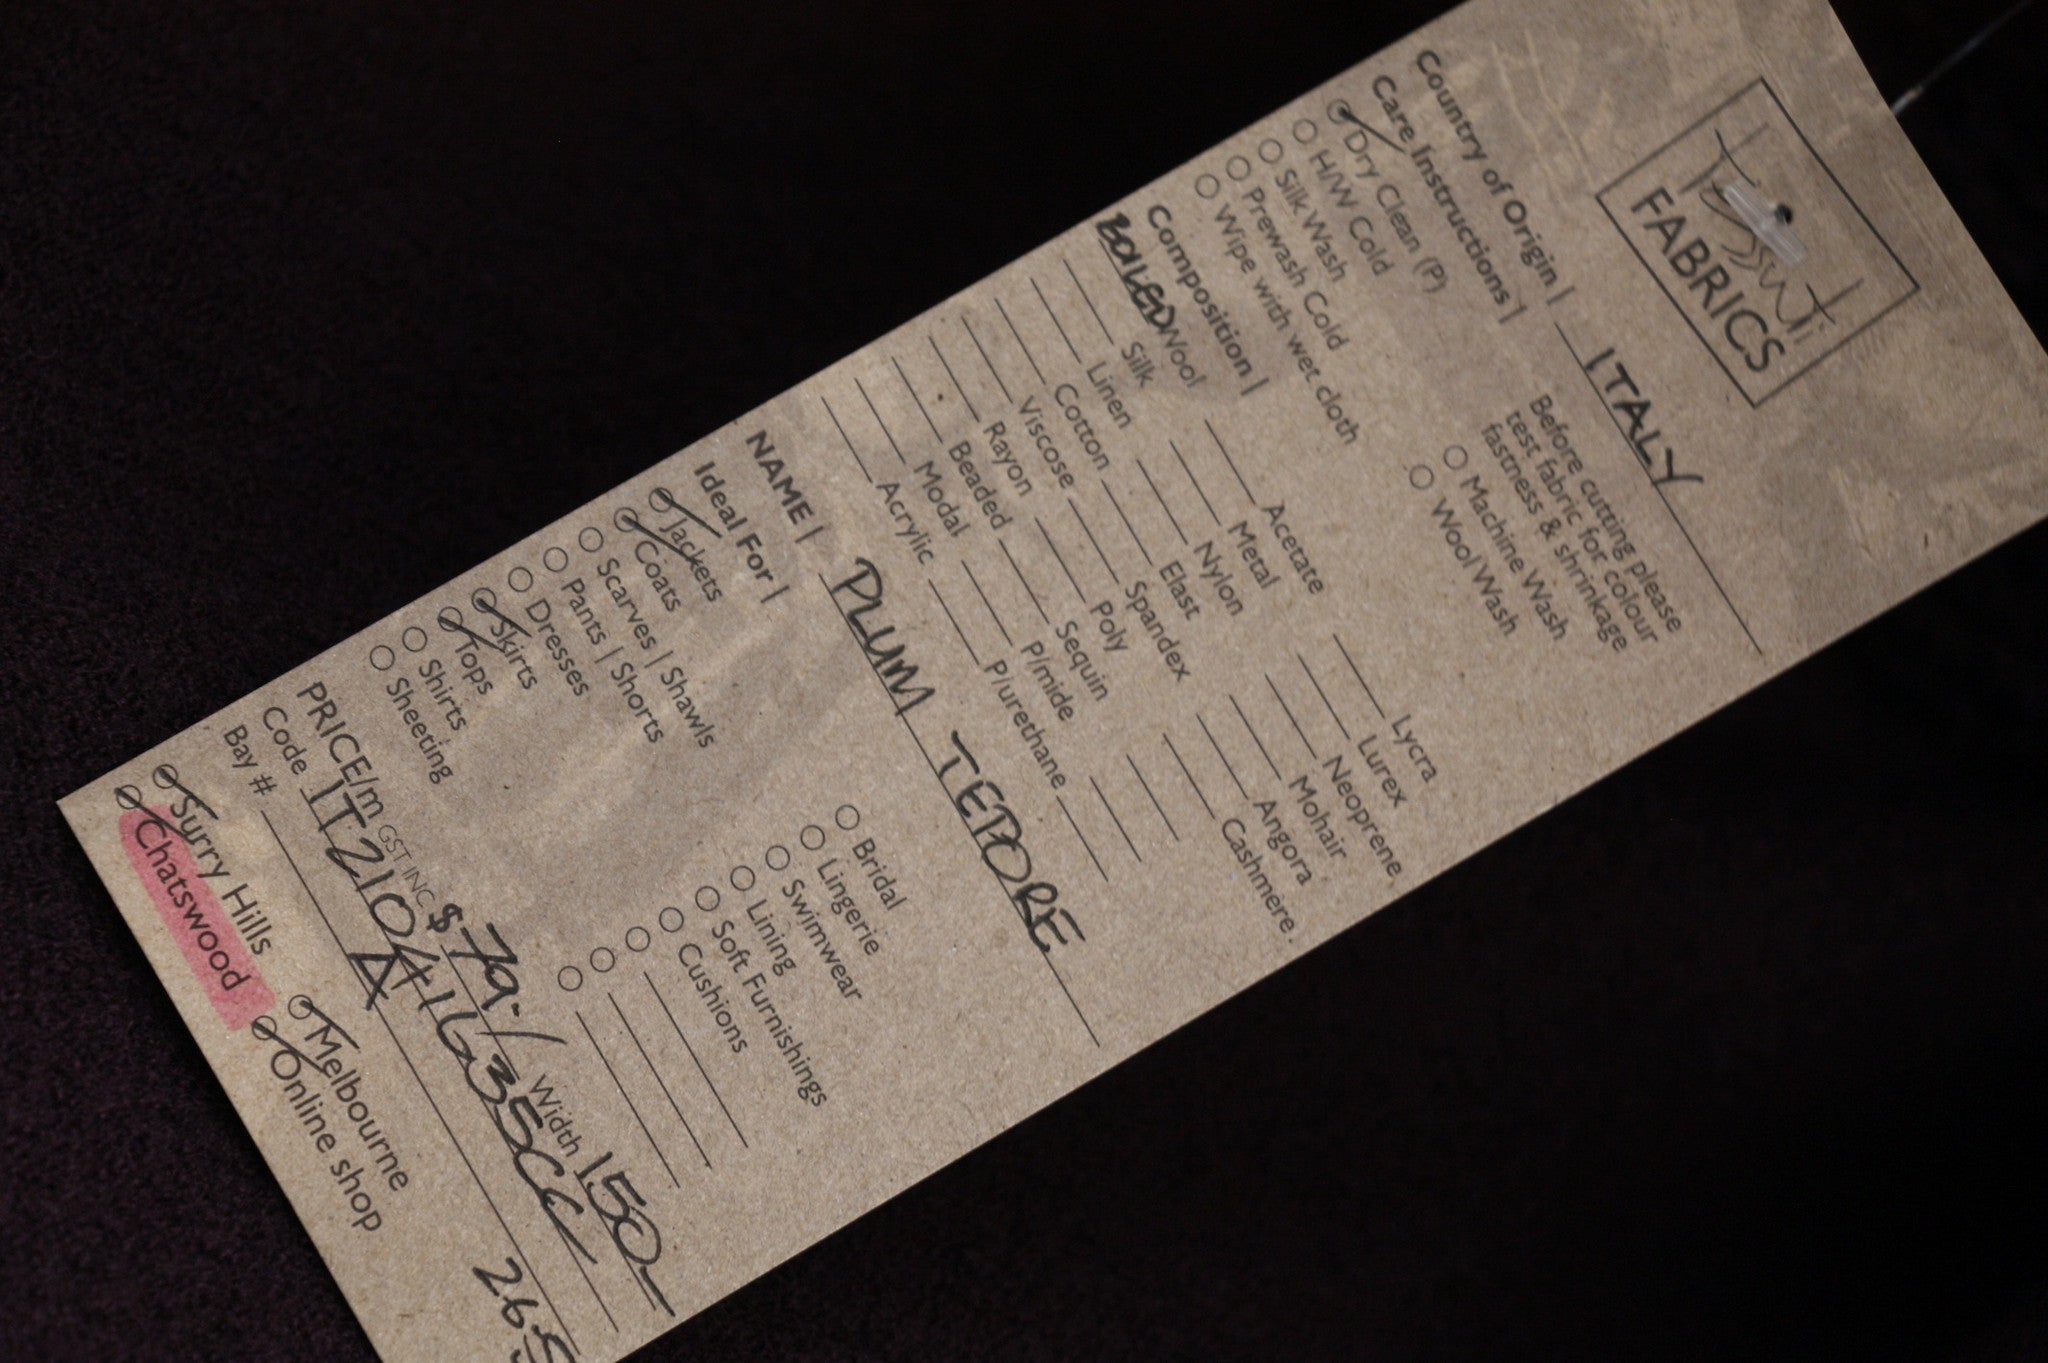 Tessuti
FABRICS
Country of Origin | ITALY
Care Instructions |
Dry Clean (P)
H/W Cold
Silk Wash
Prewash Cold
Wipe with wet cloth
Before cutting please
test fabric for colour
fastness & shrinkage
Machine Wash
Wool Wash
Composition |
BOILED Wool Acetate Lycra
Silk Metal Lurex
Linen Nylon Neoprene
Cotton Elast Mohair
Viscose Spandex Angora
Rayon Poly Cashmere.
Beaded Sequin
Modal P/mide
Acrylic P/urethane
NAME | PLUM TEPORE
Ideal For |
Jackets Bridal
Coats Lingerie
Scarves | Shawls Swimwear
Pants | Shorts Lining
Dresses Soft Furnishings
Skirts Cushions
Tops
Shirts
Sheeting
PRICE/m GST INC $79-/ Width 150-
Code IT21041635CC
Bay # A 26.5
Surry Hills Melbourne
Chatswood Online shop